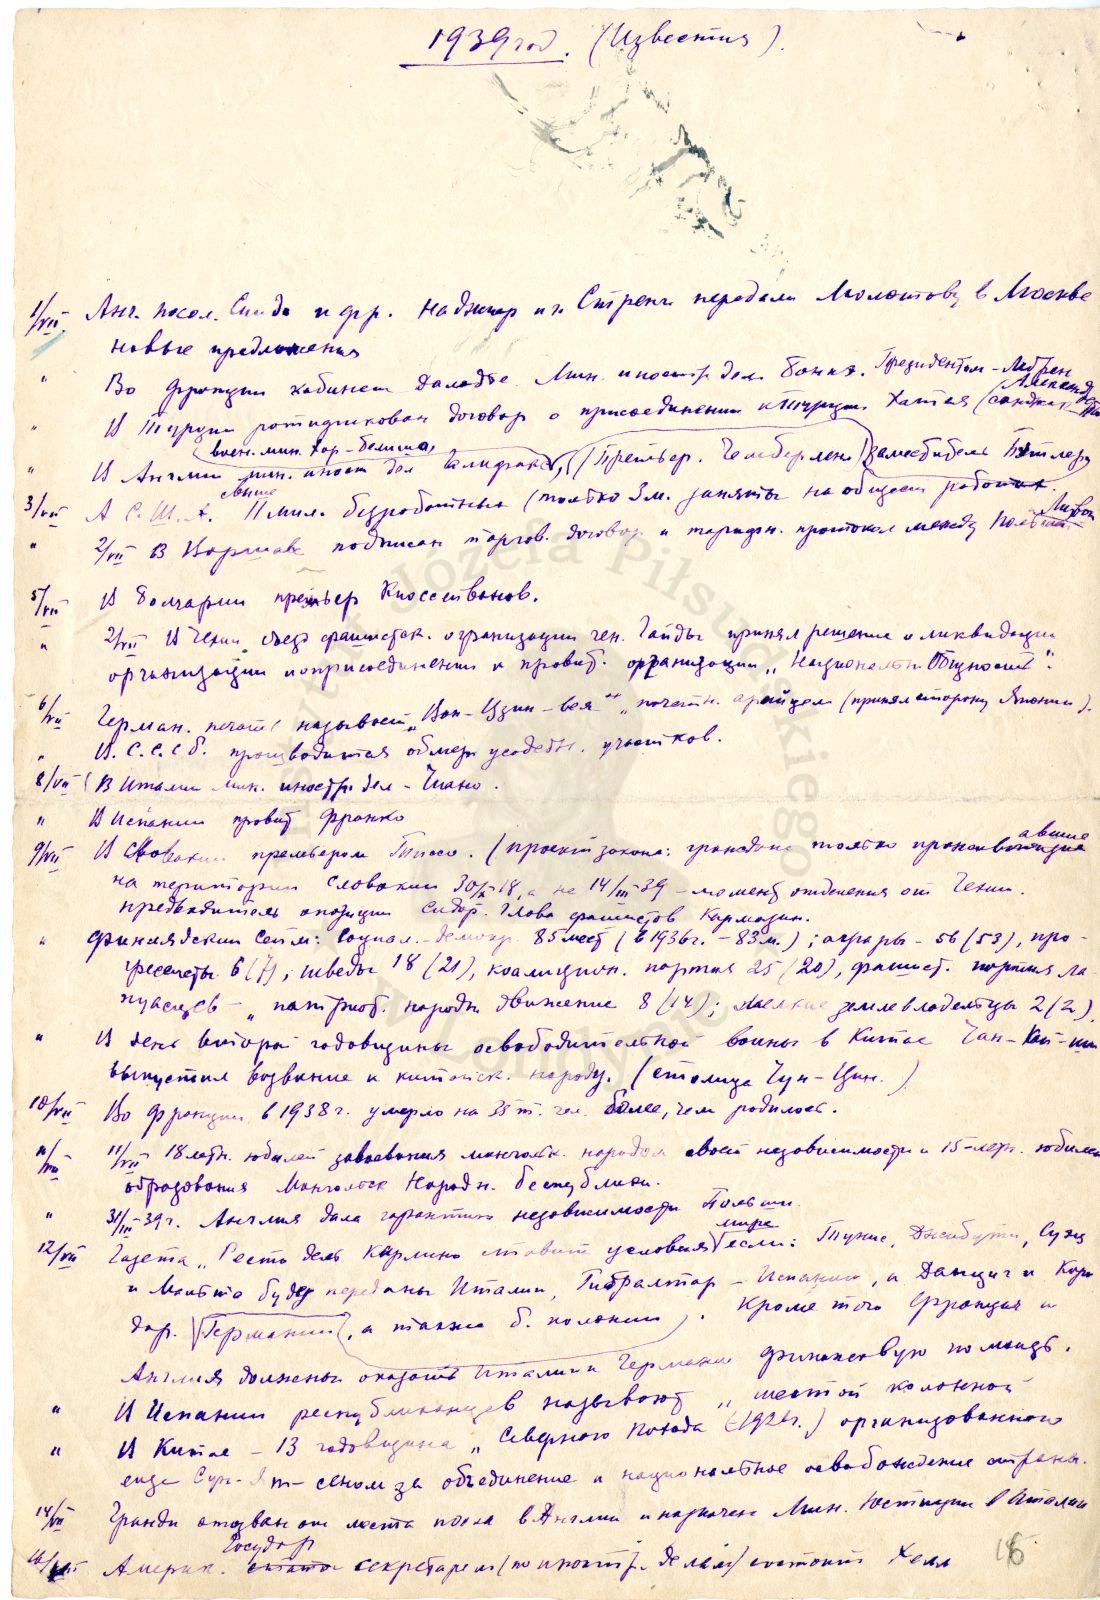 1939 год. (Известия).
1/VII Анг. посол. Сиидс и фр. Наджиар и г. Стренг передали Молотову в Москве
новые предложения
" Во Франции кабинет Даладье. Мин. иностр. дел Боннэ. Президентом - Лебрен
" В Турции ратификован договор о присоединении к Турции Хатая (санджак Александ
воен. мин. Хор-Белиша,
" В Англии мин. иност. дел Галифакс, (Премьер. Чемберлен) заместитель Бетлер
3/VII А С.Ш.А. свыше 11 мил. безработных (только 3 м. заняты на обществ. работах.
" 2/VII В Варшаве подписан торгов. договор и тарифн. протокол между Польш. Литвой
5/VII В Болгарии премьер Киоссеиванов.
" 2/VII В Чехии съезд фашистск. организации ген. Гайды принял решение о ликвидации
организации и присоединении к правит. организации „Национальн. Общность".
6/VII Герман. печать называет „Ван-Цзин-вея" „почетн. арийцем" (принял сторону Японии).
" В С.С.С.Р. производится обмер усадебн. участков.
8/VII (В Италии мин. иностр. дел - Чиано.
" В Испании правит Франко
9/VII В Словакии премьером Тиссо. (проект закона: граждане только проживавшие
на територии Словакии 30/X-18, а не 14/III-39 - момент отделения от Чехии.
предводитель опозиции Сидор. Глава фашистов Кармазин.
" Финляндский сейм: Социал.-демокр. 85 мест (в 1936 г. - 83 м.); аграры - 56 (53), про-
грессисты 6 (7), шведы 18 (21), коалицион. партия 25 (20), фашист. партия ла-
пуасцев - „патриот. народн. движение 8 (14); мелкие землевладельцы 2 (2).
" В день второй годовщины освободительной войны в Китае Чан-Кай-ши
выпустил воззвание к китайск. народу. (столица Чун-Цин.)
10/VII Во Франции в 1938 г. умерло на 35 т. чел. более, чем родилось.
11/VII 11/VII 18 летн. юбилей завоевания монгольск. народом своей независимости и 15-летн. юбилей
образования Монгольск. Народн. Республики.
" 31/III-39 г. Англия дала гарантию независимости Польши.
12/VII Газета „Ресто дель Карлино ставит условия мира если: Тунис, Джибути, Суэц
и Мальта будут переданы Италии, Гибралтар - Испании, а Данциг и Кори
дор. Германии, а также б. колонии. Кроме того Франция и
Англия должены оказать Италии и Германии финансовую помощь.
" В Испании республиканцев называют „шестой колонной
" В Китае - 13 годовщина „Северного Похода (1926 г.) организованного
еще Сун-Ят-сеном за объединение и национальное освобождение страны.
14/VII Гранди отозван от места посла в Англии и назначен Мин. Юстиции в Италии
16/VII Америк. Государ секретарем (по иностр. делам) состоит Хелл
16
Józefa Piłsudskiego